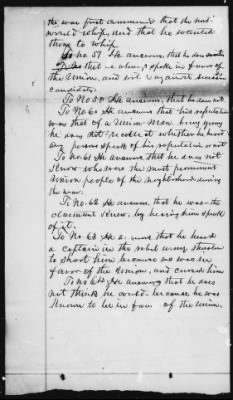 the war first commenced that the reb's
would whip, and that he wanted
them to whip.
To no. 57 He answers, that he
that he always spoke in favor of
the Union, and voted against secession
candidates.
To No 58 He answers, that he does not.
To No 60 He answers that his reputation
was that of a Union man. Living
he does not recollect whether he heard
any person speak of his reputation or not
To No 61 He answers that he does not
know who were the most prominent
Union people of the neighborhood during
the war.
To No. 62 He answers, that he was the
claimant knew, by hearing him speak
of it.
To No. 63 He answers that he heard
a captain in the reb army threaten
to shoot him because he was in
favor of the Union, and cursed him
To No 64 He answers that he does
not think he could because he was
known to be in favor of the Union.